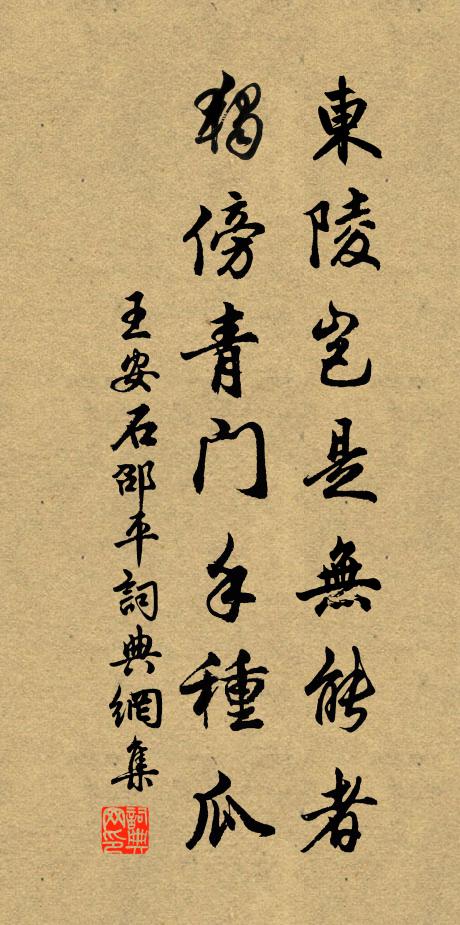 東陵岂是無能者
獨傍青門手種瓜
王安石邵平詞典網集
詞典网印